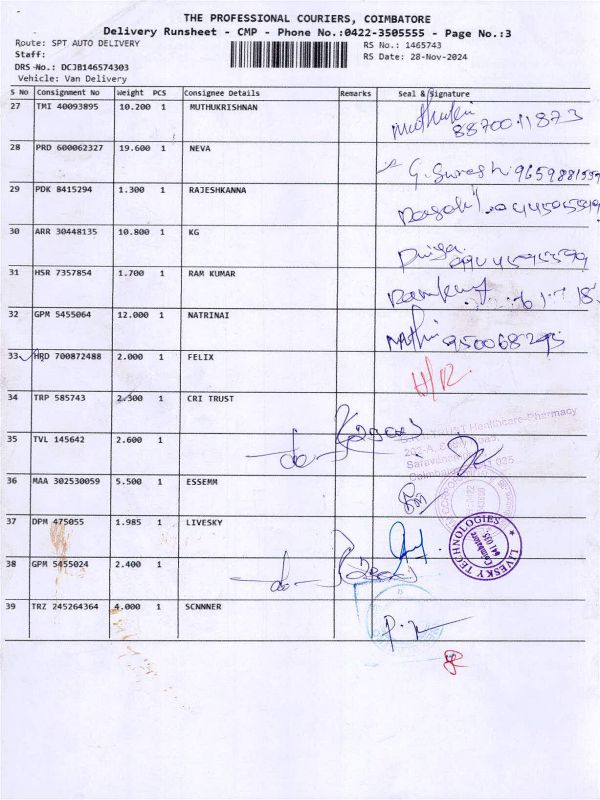 THE PROFESSIONAL COURIERS, COIMBATORE
Delivery Runsheet - CMP - Phone No.:0422-3505555 - Page No.:3
Route: SPT AUTO DELIVERY RS No.: 1465743
Staff: RS Date: 28-Nov-2024
DRS No.: DCJB146574303
Vehicle: Van Delivery
S No Consignment No Weight PCS Consignee Details Remarks Seal & Signature
27 TMI 40093895 10.200 1 MUTHUKRISHNAN
8870011873
28 PRD 600062327 19.600 1 NEVA
G. Suresh
29 PDK 8415294 1.300 1 RAJESHKANNA
30 ARR 30448135 10.800 1 KG
31 HSR 7357854 1.700 1 RAM KUMAR
32 GPM 5455064 12.000 1 NATRINAI
33 HRD 700872488 2.000 1 FELIX
H/R
34 TRP 585743 2.300 1 CRI TRUST
TRUST Healthcare-Pharmacy
35 TVL 145642 2.600 1
36 MAA 302530059 5.500 1 ESSEMM
37 DPM 475055 1.985 1 LIVESKY
LIVESKY TECHNOLOGIES
Coimbatore
641 035.
38 GPM 5455024 2.400 1
39 TRZ 245264364 4.000 1 SCNNNER